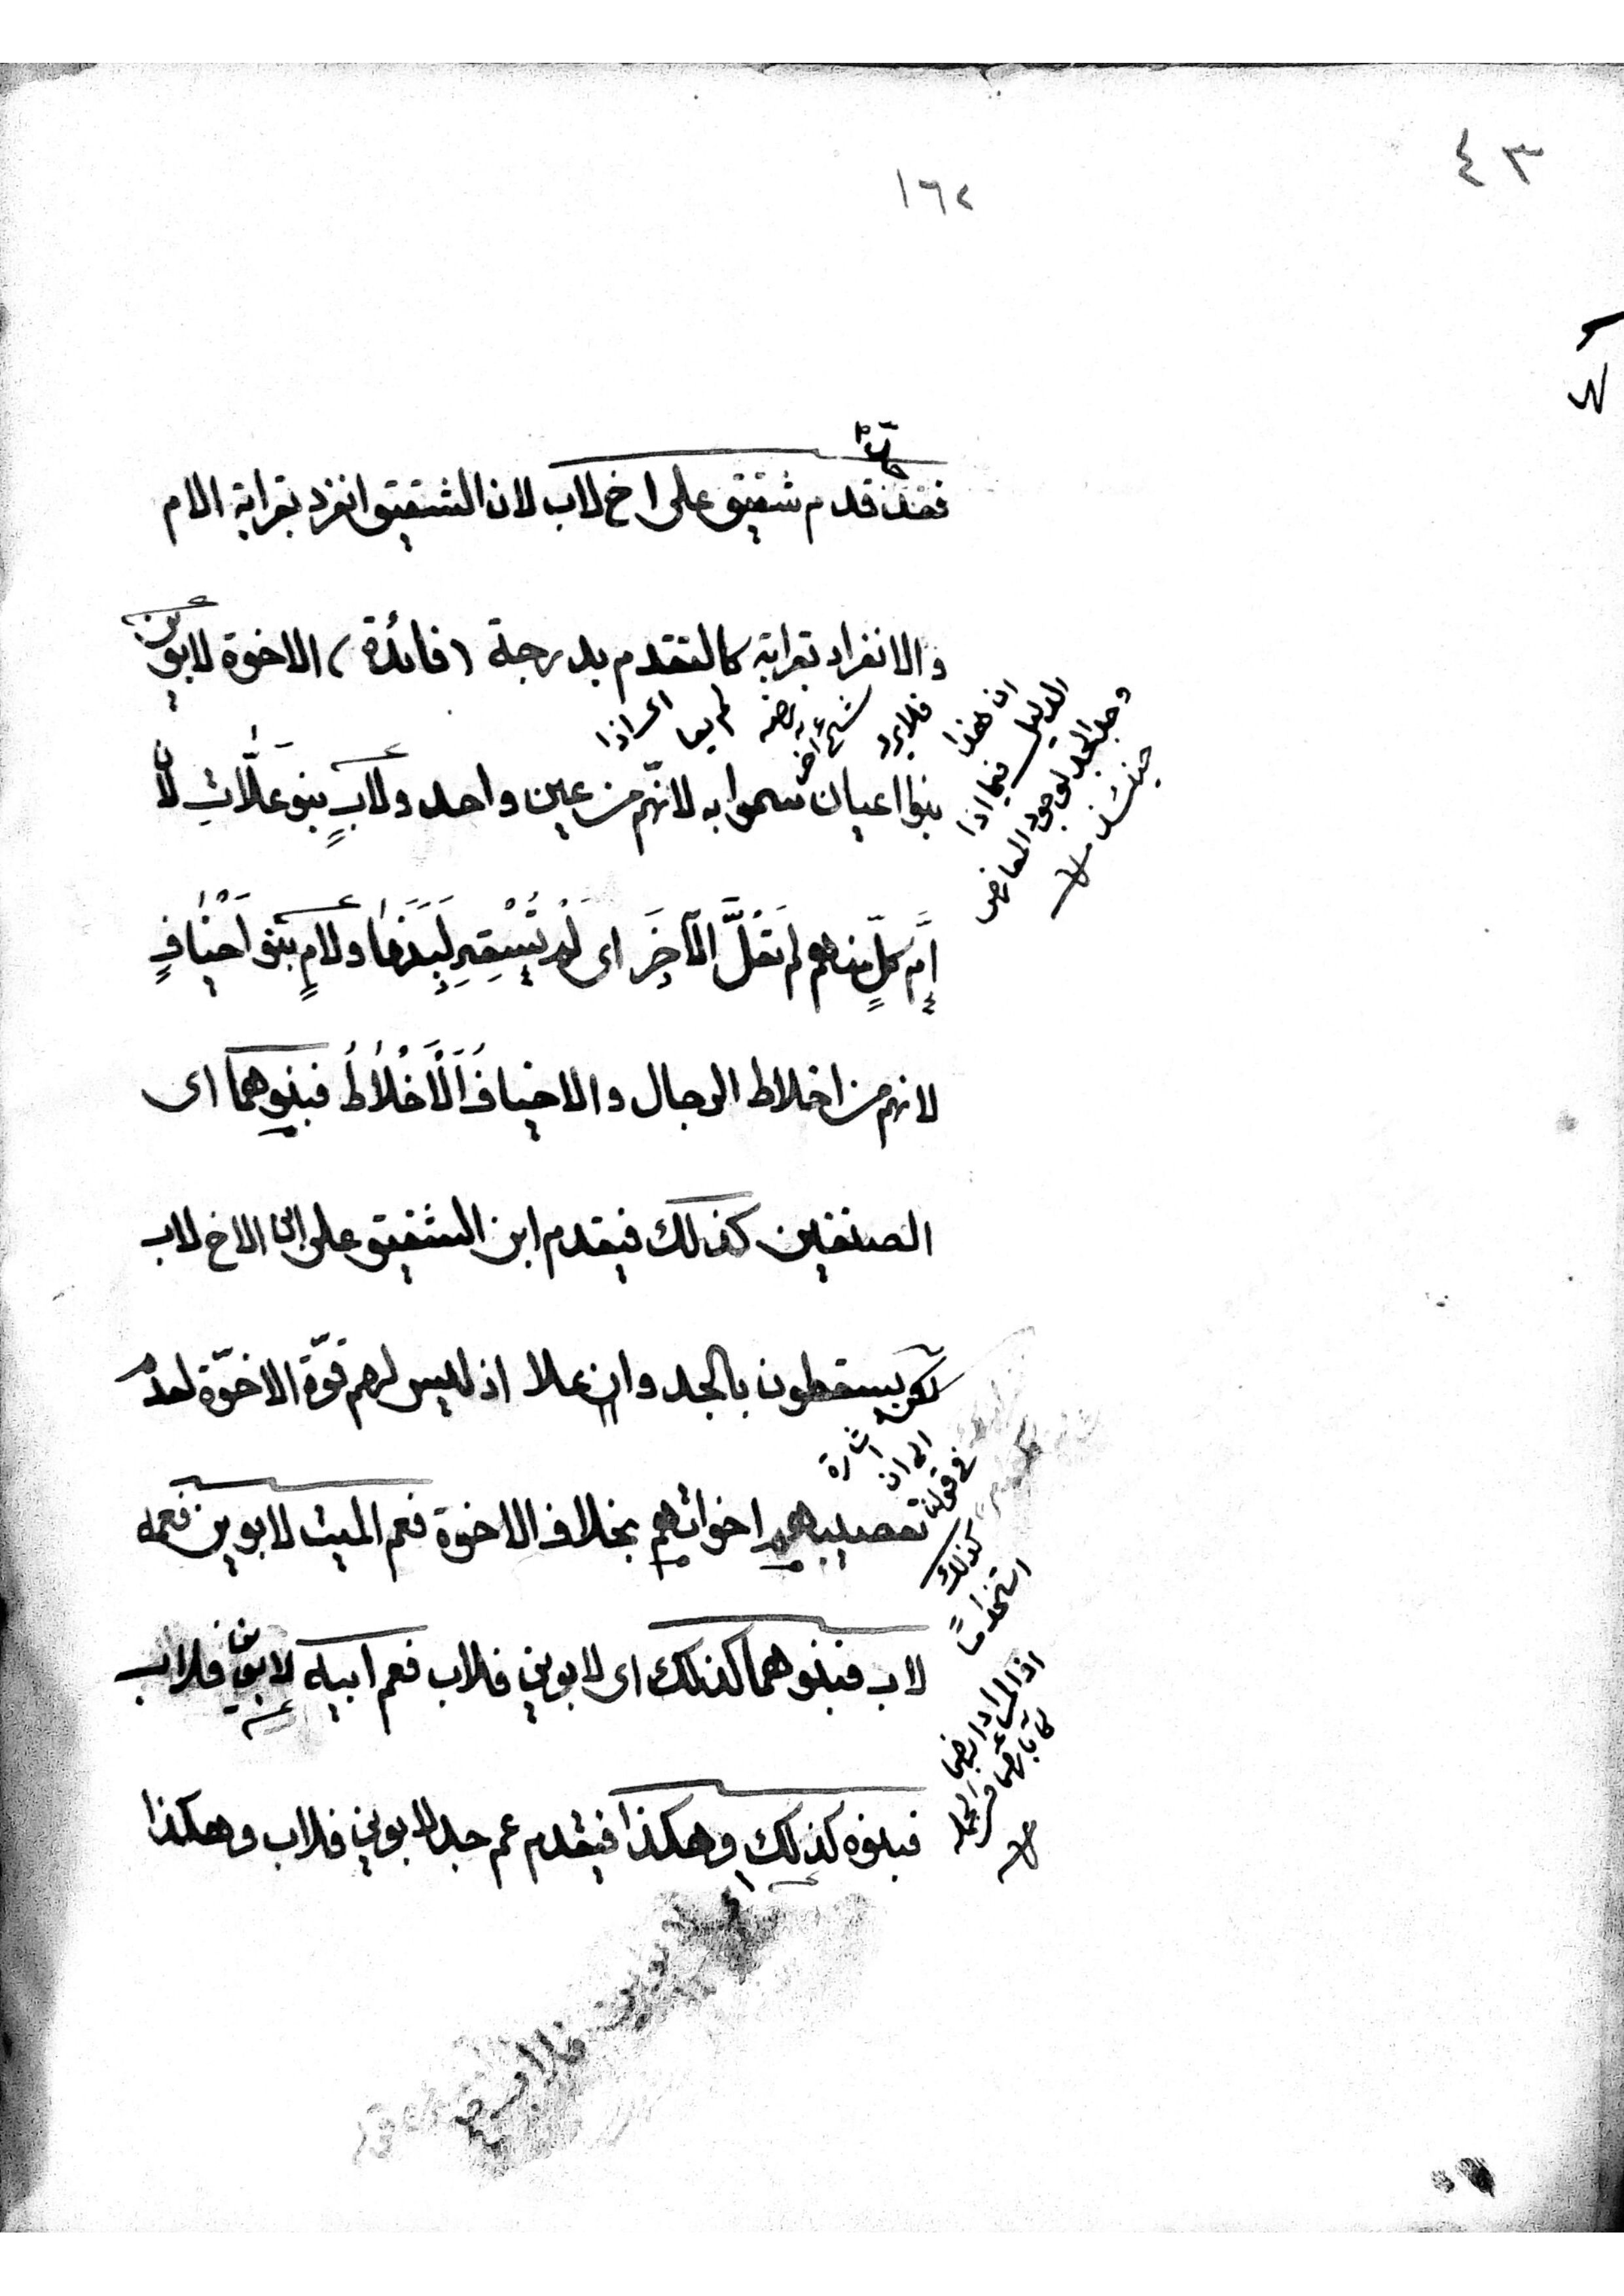 ٤٣
١٦٢
فقد قدم شقيق على اخ لاب لان الشقيق انفرد بقرابة الام
والانفراد بقرابة كالتقدم بدرجة (فائدة) الاخوة لابوين
بنوا اعيان سموا به لانّهم من عين واحد ولابٍ بنو علّات لان
اِمّ كلٍّ منهم لم تَعُلَّ الآخَرَ اى لم تُسْقِهِ لَبَنَها ولامٍ بنو اَخْيافٍ
لانهم من اخلاط الرجال والاخياف اَلْاَخْلاطُ فبنوهما اى
الصنفين كذلك فيقدم ابن الشقيق على ابن الاخ لاب
لكن يسقطون بالجد وان علا اذ ليس لهم قوّة الاخوّة لعدم
تعصيبهم اخواتهم بخلاف الاخوة فعم الميت لابوين فعمه
لاب فبنوهما كذلك اى لابوين فلاب فعم ابيه لابوين فلاب
فبنوه كذلك وهكذا فيقدم عم جد لابوين فلاب وهكذا
ان هذا
الدليل فيما اذا
وجد الجد لوجود المعارض
حينئذ
اشارة
الى ان
فى قوله
كذلك
استخداما
اذ المراد
لابوين فلاب